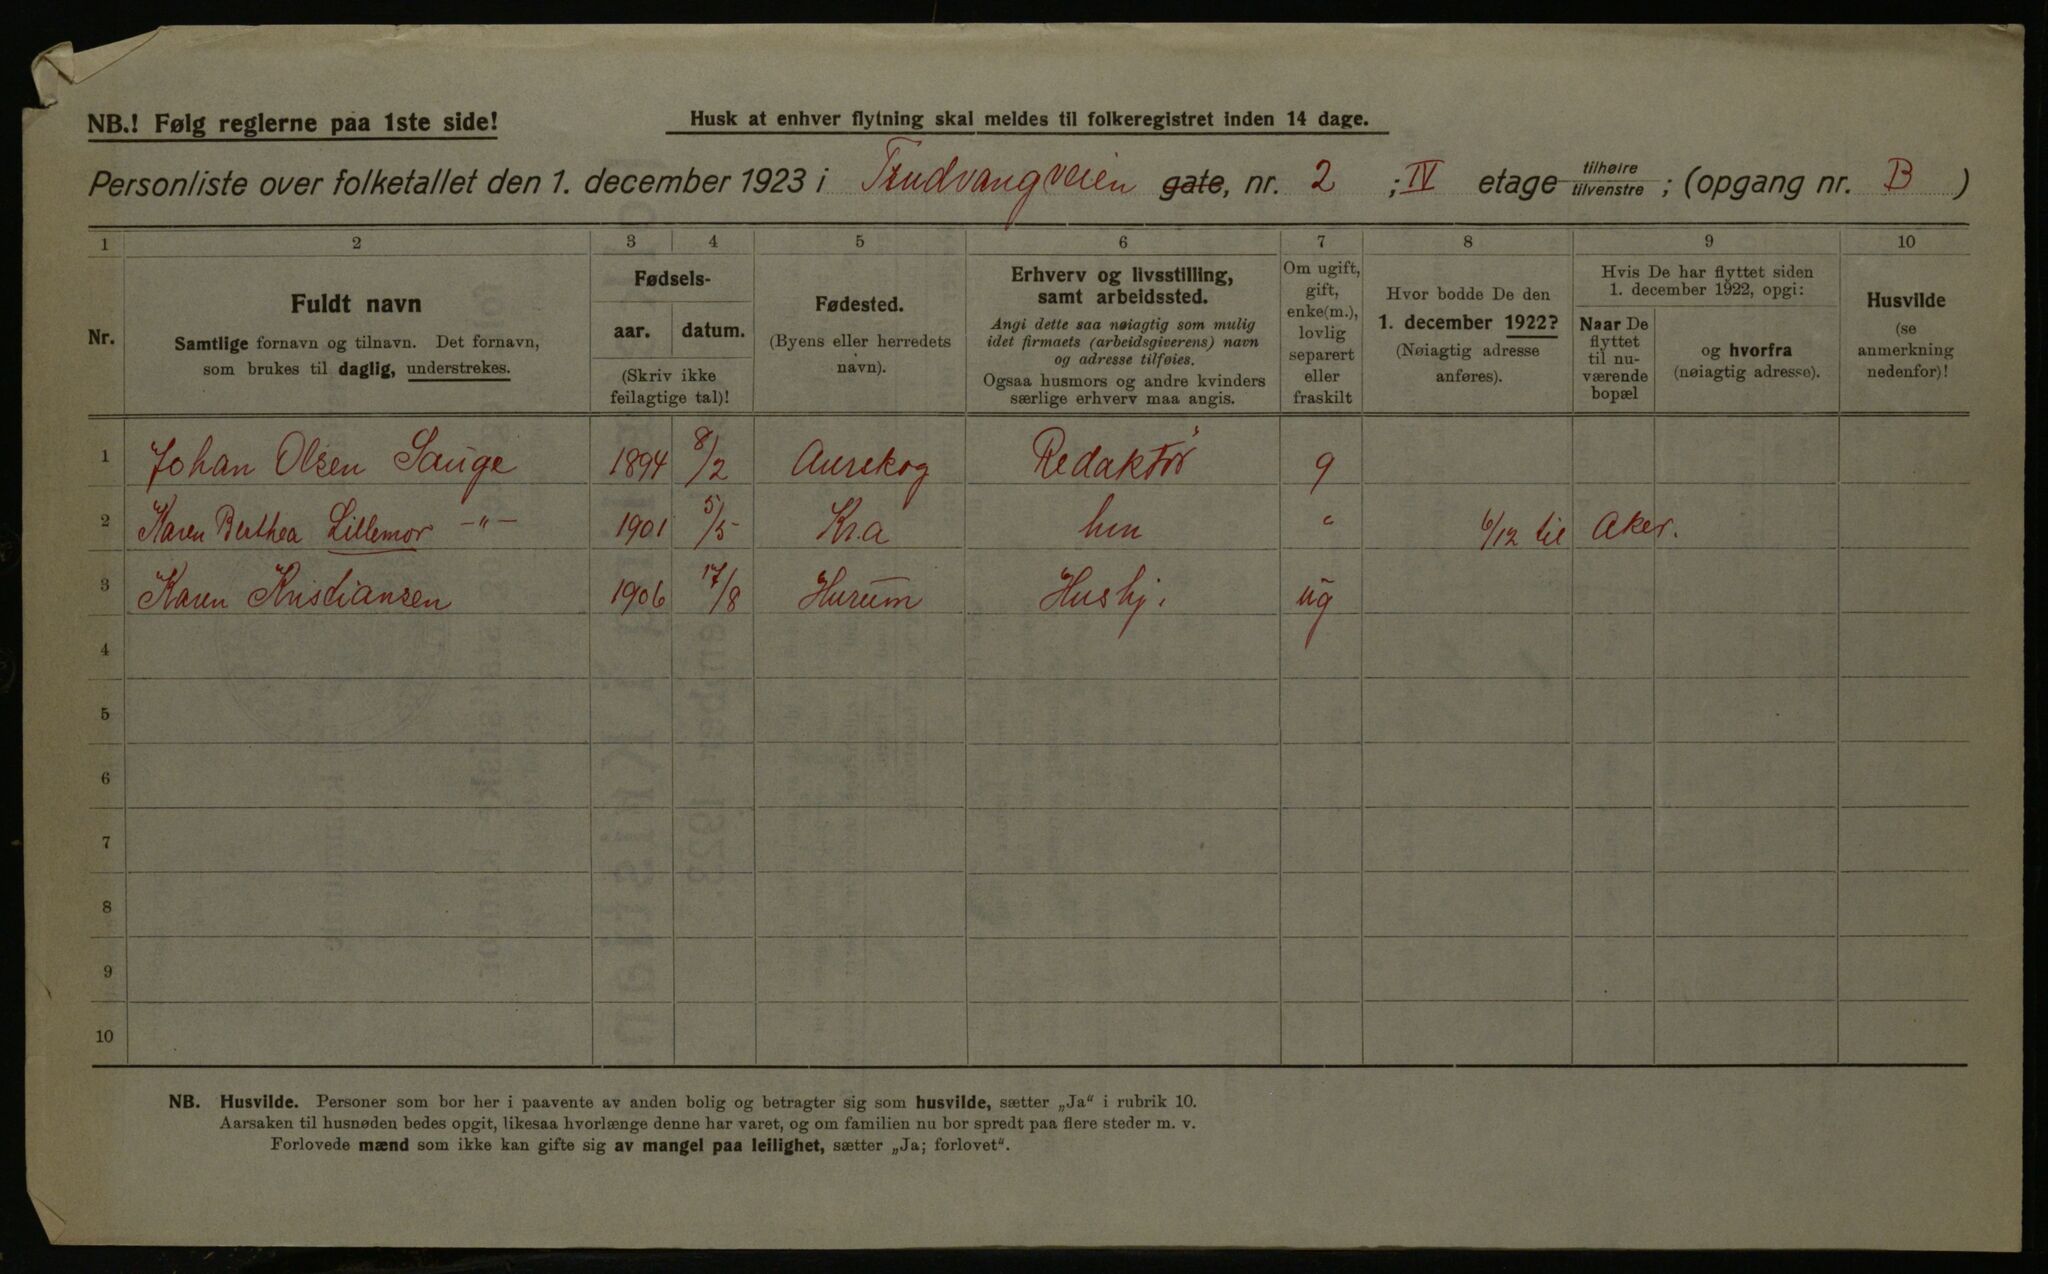 NB.! Følg reglerne paa 1ste side!
Husk at enhver flytning skal meldes til folkeregistret inden 14 dage.
Personliste over folketallet den 1. december 1923 i Trudvangveien gate, nr. 2 ; IV etage tilhøire tilvenstre ; (opgang nr. B )
1 2 3 4 5 6 7 8 9 10
Nr.
Fuldt navn
Samtlige fornavn og tilnavn. Det fornavn,
som brukes til daglig, understrekes.
Fødsels-
aar. datum.
(Skriv ikke
feilagtige tal)!
Fødested.
(Byens eller herredets
navn).
Erhverv og livsstilling,
samt arbeidssted.
Angi dette saa nøiagtig som mulig
idet firmaets (arbeidsgiverens) navn
og adresse tilføies.
Ogsaa husmors og andre kvinders
særlige erhverv maa angis.
Om ugift,
gift,
enke(m.),
lovlig
separert
eller
fraskilt
Hvor bodde De den
1. december 1922?
(Nøiagtig adresse
anføres).
Hvis De har flyttet siden
1. december 1922, opgi:
Naar De
flyttet
til nu-
værende
bopæl
og hvorfra
(nøiagtig adresse).
Husvilde
(se
anmerkning
nedenfor)!
1 Johan Olsen Sauge 1894 8/2 Aurskog Redaktør g
2 Karen Berthea Lillemor -"- 1901 5/5 Kr.a hm " 6/12 til Aker.
3 Karen Kristiansen 1906 17/8 Hurum Hushj. ug
4
5
6
7
8
9
10
NB. Husvilde. Personer som bor her i paavente av anden bolig og betragter sig som husvilde, sætter „Ja" i rubrik 10.
Aarsaken til husnøden bedes opgit, likesaa hvorlænge denne har varet, og om familien nu bor spredt paa flere steder m. v.
Forlovede mænd som ikke kan gifte sig av mangel paa leilighet, sætter „Ja; forlovet".